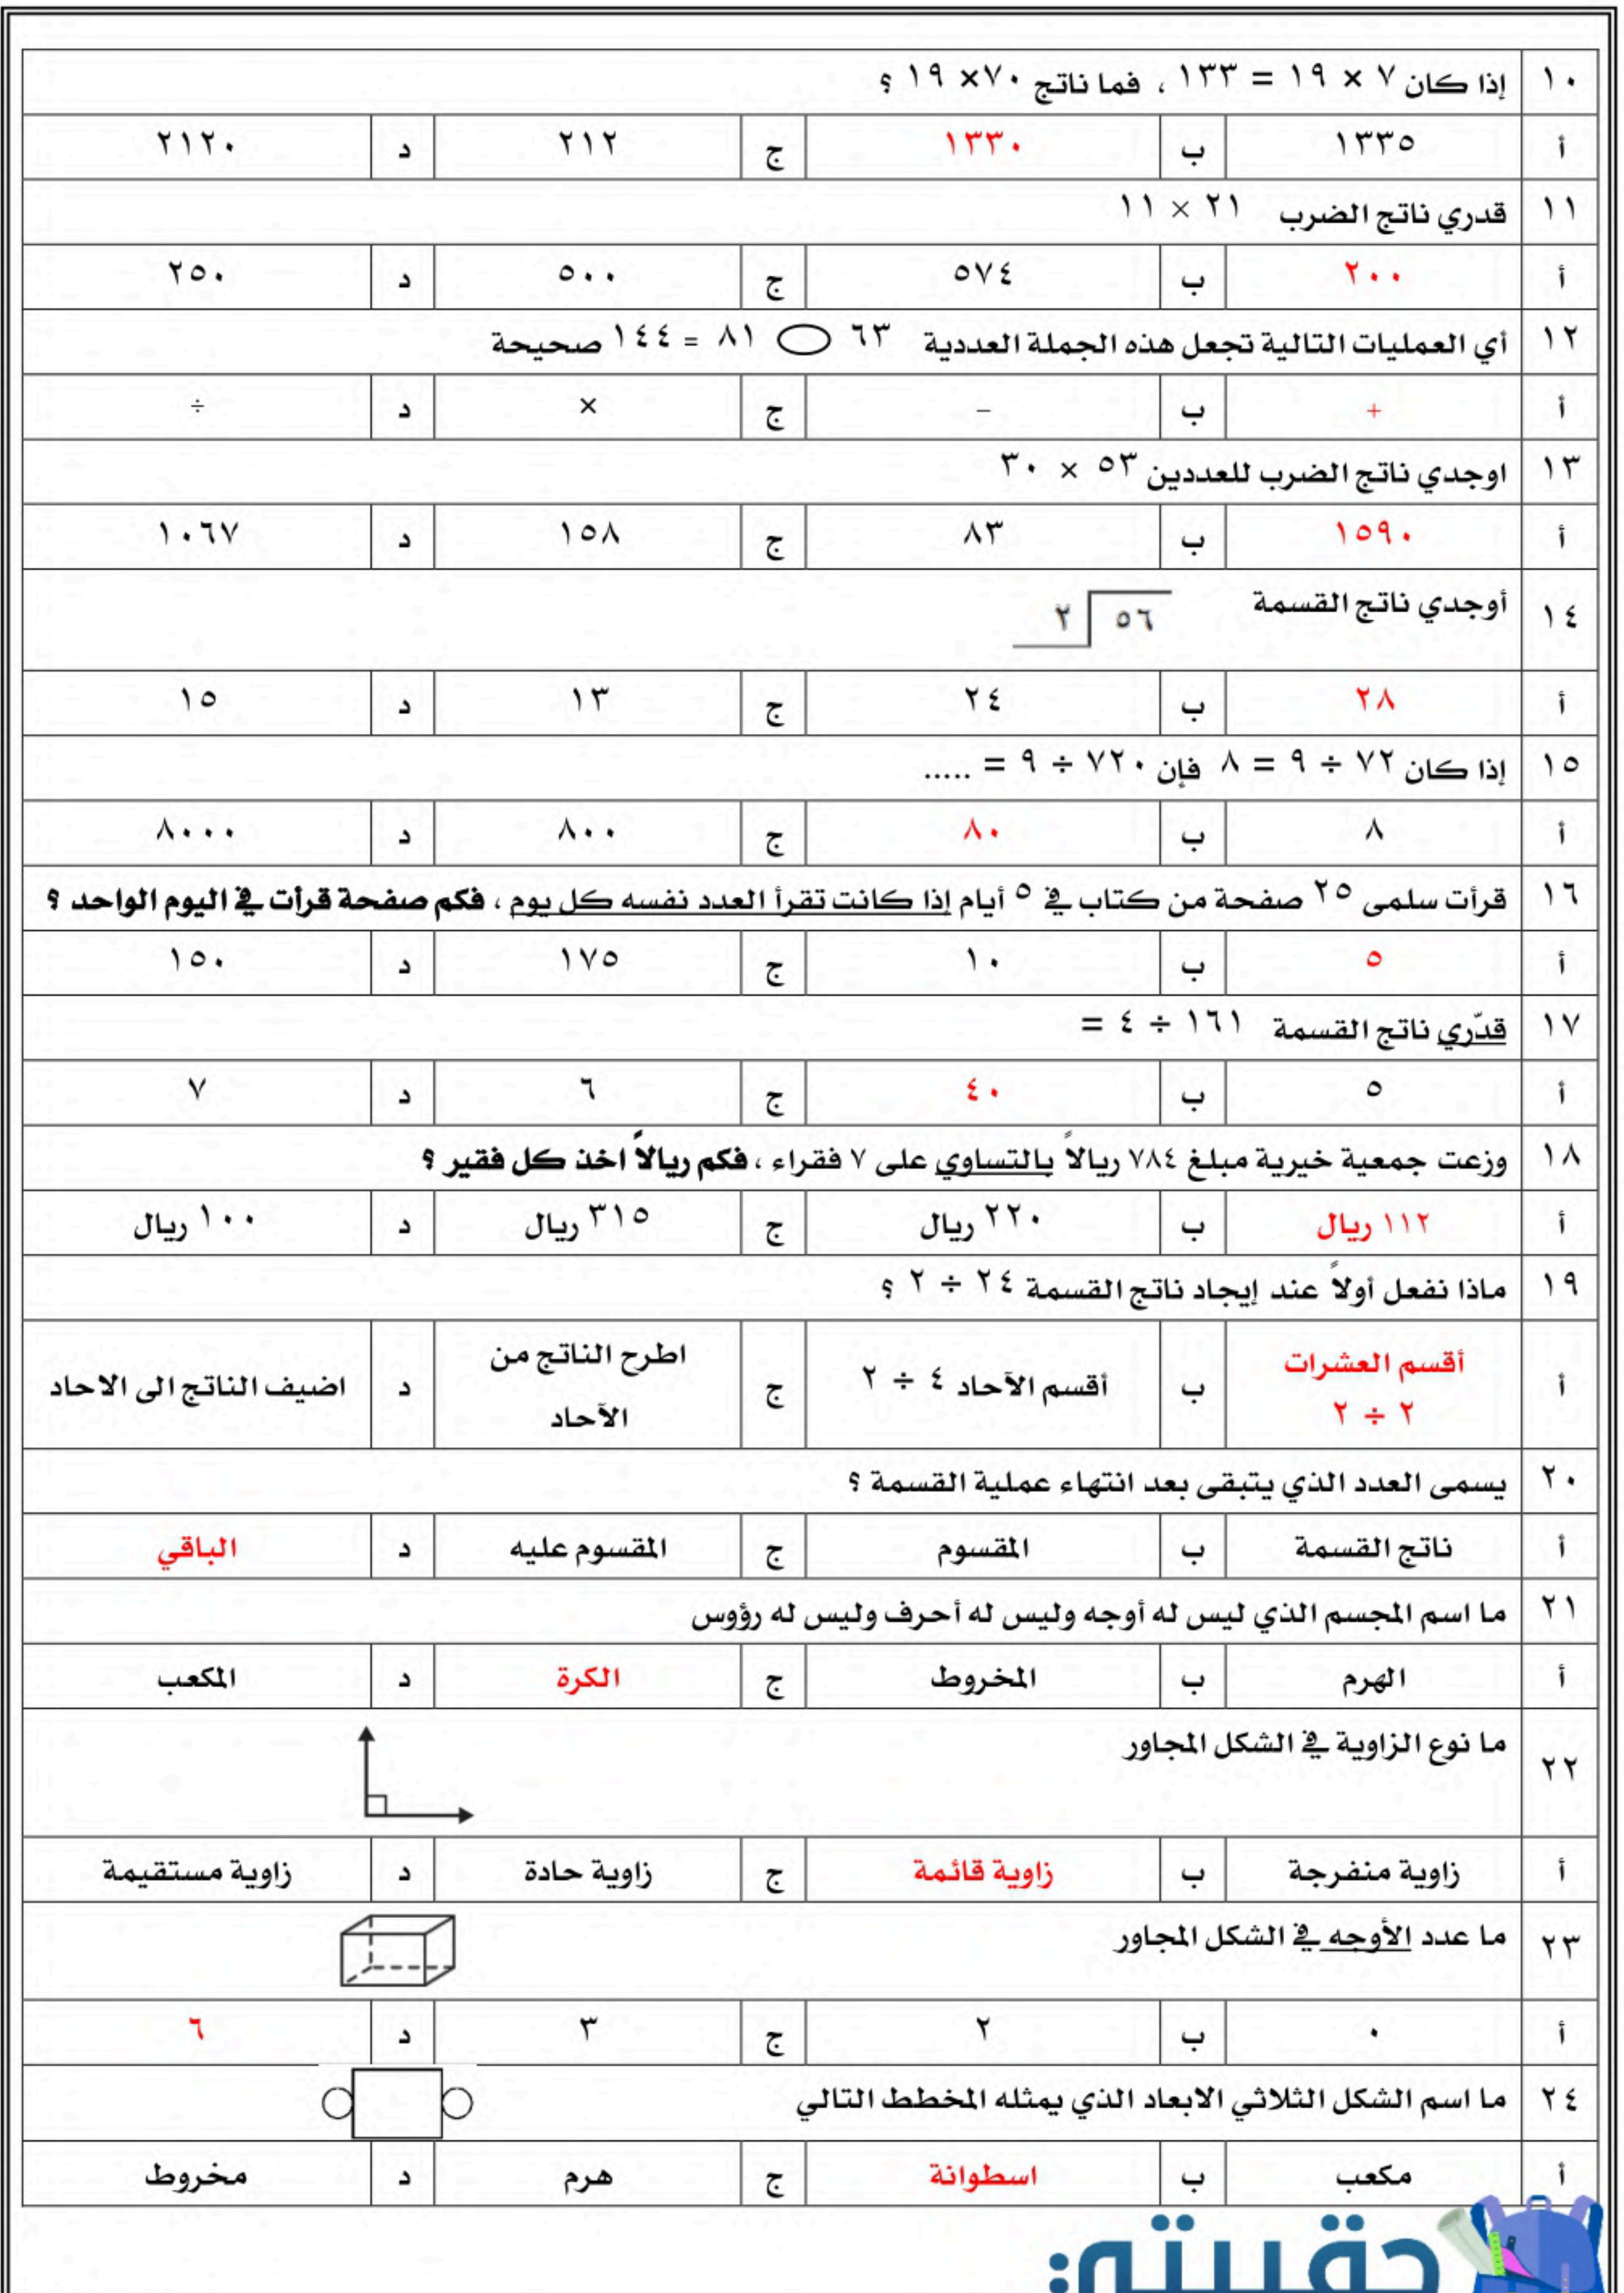 ١٠ إذا كان ٧ × ١٩ = ١٣٣ ، فما ناتج ٧٠× ١٩ ؟
أ ١٣٣٥ ب ١٣٣٠ ج ٢١٢ د ٢١٢٠
١١ قدري ناتج الضرب ٢١ × ١١
أ ٢٠٠ ب ٥٧٤ ج ٥٠٠ د ٢٥٠
١٢ أي العمليات التالية تجعل هذه الجملة العددية ٦٣ ◯ ٨١ = ١٤٤ صحيحة
أ + ب – ج × د ÷
١٣ اوجدي ناتج الضرب للعددين ٥٣ × ٣٠
أ ١٥٩٠ ب ٨٣ ج ١٥٨ د ١٠٦٧
١٤ أوجدي ناتج القسمة ٥٦ ٢
أ ٢٨ ب ٢٤ ج ١٣ د ١٥
١٥ إذا كان ٧٢ ÷ ٩ = ٨ فإن ٧٢٠ ÷ ٩ = .....
أ ٨ ب ٨٠ ج ٨٠٠ د ٨٠٠٠
١٦ قرأت سلمى ٢٥ صفحة من كتاب في ٥ أيام إذا كانت تقرأ العدد نفسه كل يوم ، فكم صفحة قرأت في اليوم الواحد ؟
أ ٥ ب ١٠ ج ١٧٥ د ١٥٠
١٧ قدّري ناتج القسمة ١٦١ ÷ ٤ =
أ ٥ ب ٤٠ ج ٦ د ٧
١٨ وزعت جمعية خيرية مبلغ ٧٨٤ ريالاً بالتساوي على ٧ فقراء ، فكم ريالاً اخذ كل فقير ؟
أ ١١٢ ريال ب ٢٢٠ ريال ج ٣١٥ ريال د ١٠٠ ريال
١٩ ماذا نفعل أولاً عند إيجاد ناتج القسمة ٢٤ ÷ ٢ ؟
أ أقسم العشرات ٢ ÷ ٢ ب أقسم الآحاد ٤ ÷ ٢ ج اطرح الناتج من الآحاد د اضيف الناتج الى الاحاد
٢٠ يسمى العدد الذي يتبقى بعد انتهاء عملية القسمة ؟
أ ناتج القسمة ب المقسوم ج المقسوم عليه د الباقي
٢١ ما اسم المجسم الذي ليس له أوجه وليس له أحرف وليس له رؤوس
أ الهرم ب المخروط ج الكرة د المكعب
٢٢ ما نوع الزاوية في الشكل المجاور
أ زاوية منفرجة ب زاوية قائمة ج زاوية حادة د زاوية مستقيمة
٢٣ ما عدد الأوجه في الشكل المجاور
أ ٠ ب ٢ ج ٣ د ٦
٢٤ ما اسم الشكل الثلاثي الابعاد الذي يمثله المخطط التالي
أ مكعب ب اسطوانة ج هرم د مخروط
حقيبتي